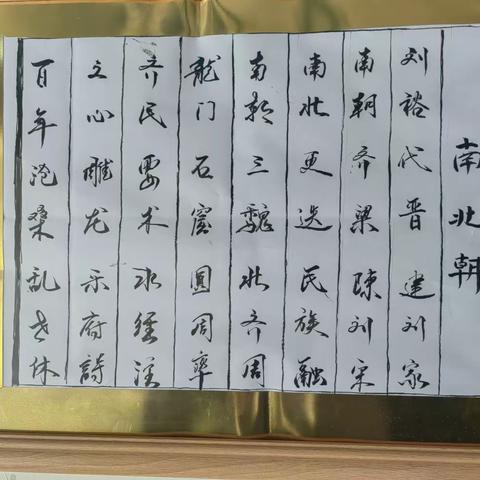 南北朝
刘裕代晋建刘家
南朝齐梁陈刘宋
南北更迭民族融
南朝三魏北齐周
龍门石窟圓周率
齐民要术水经注
文心雕龙乐府詩
百年沧桑乱世休